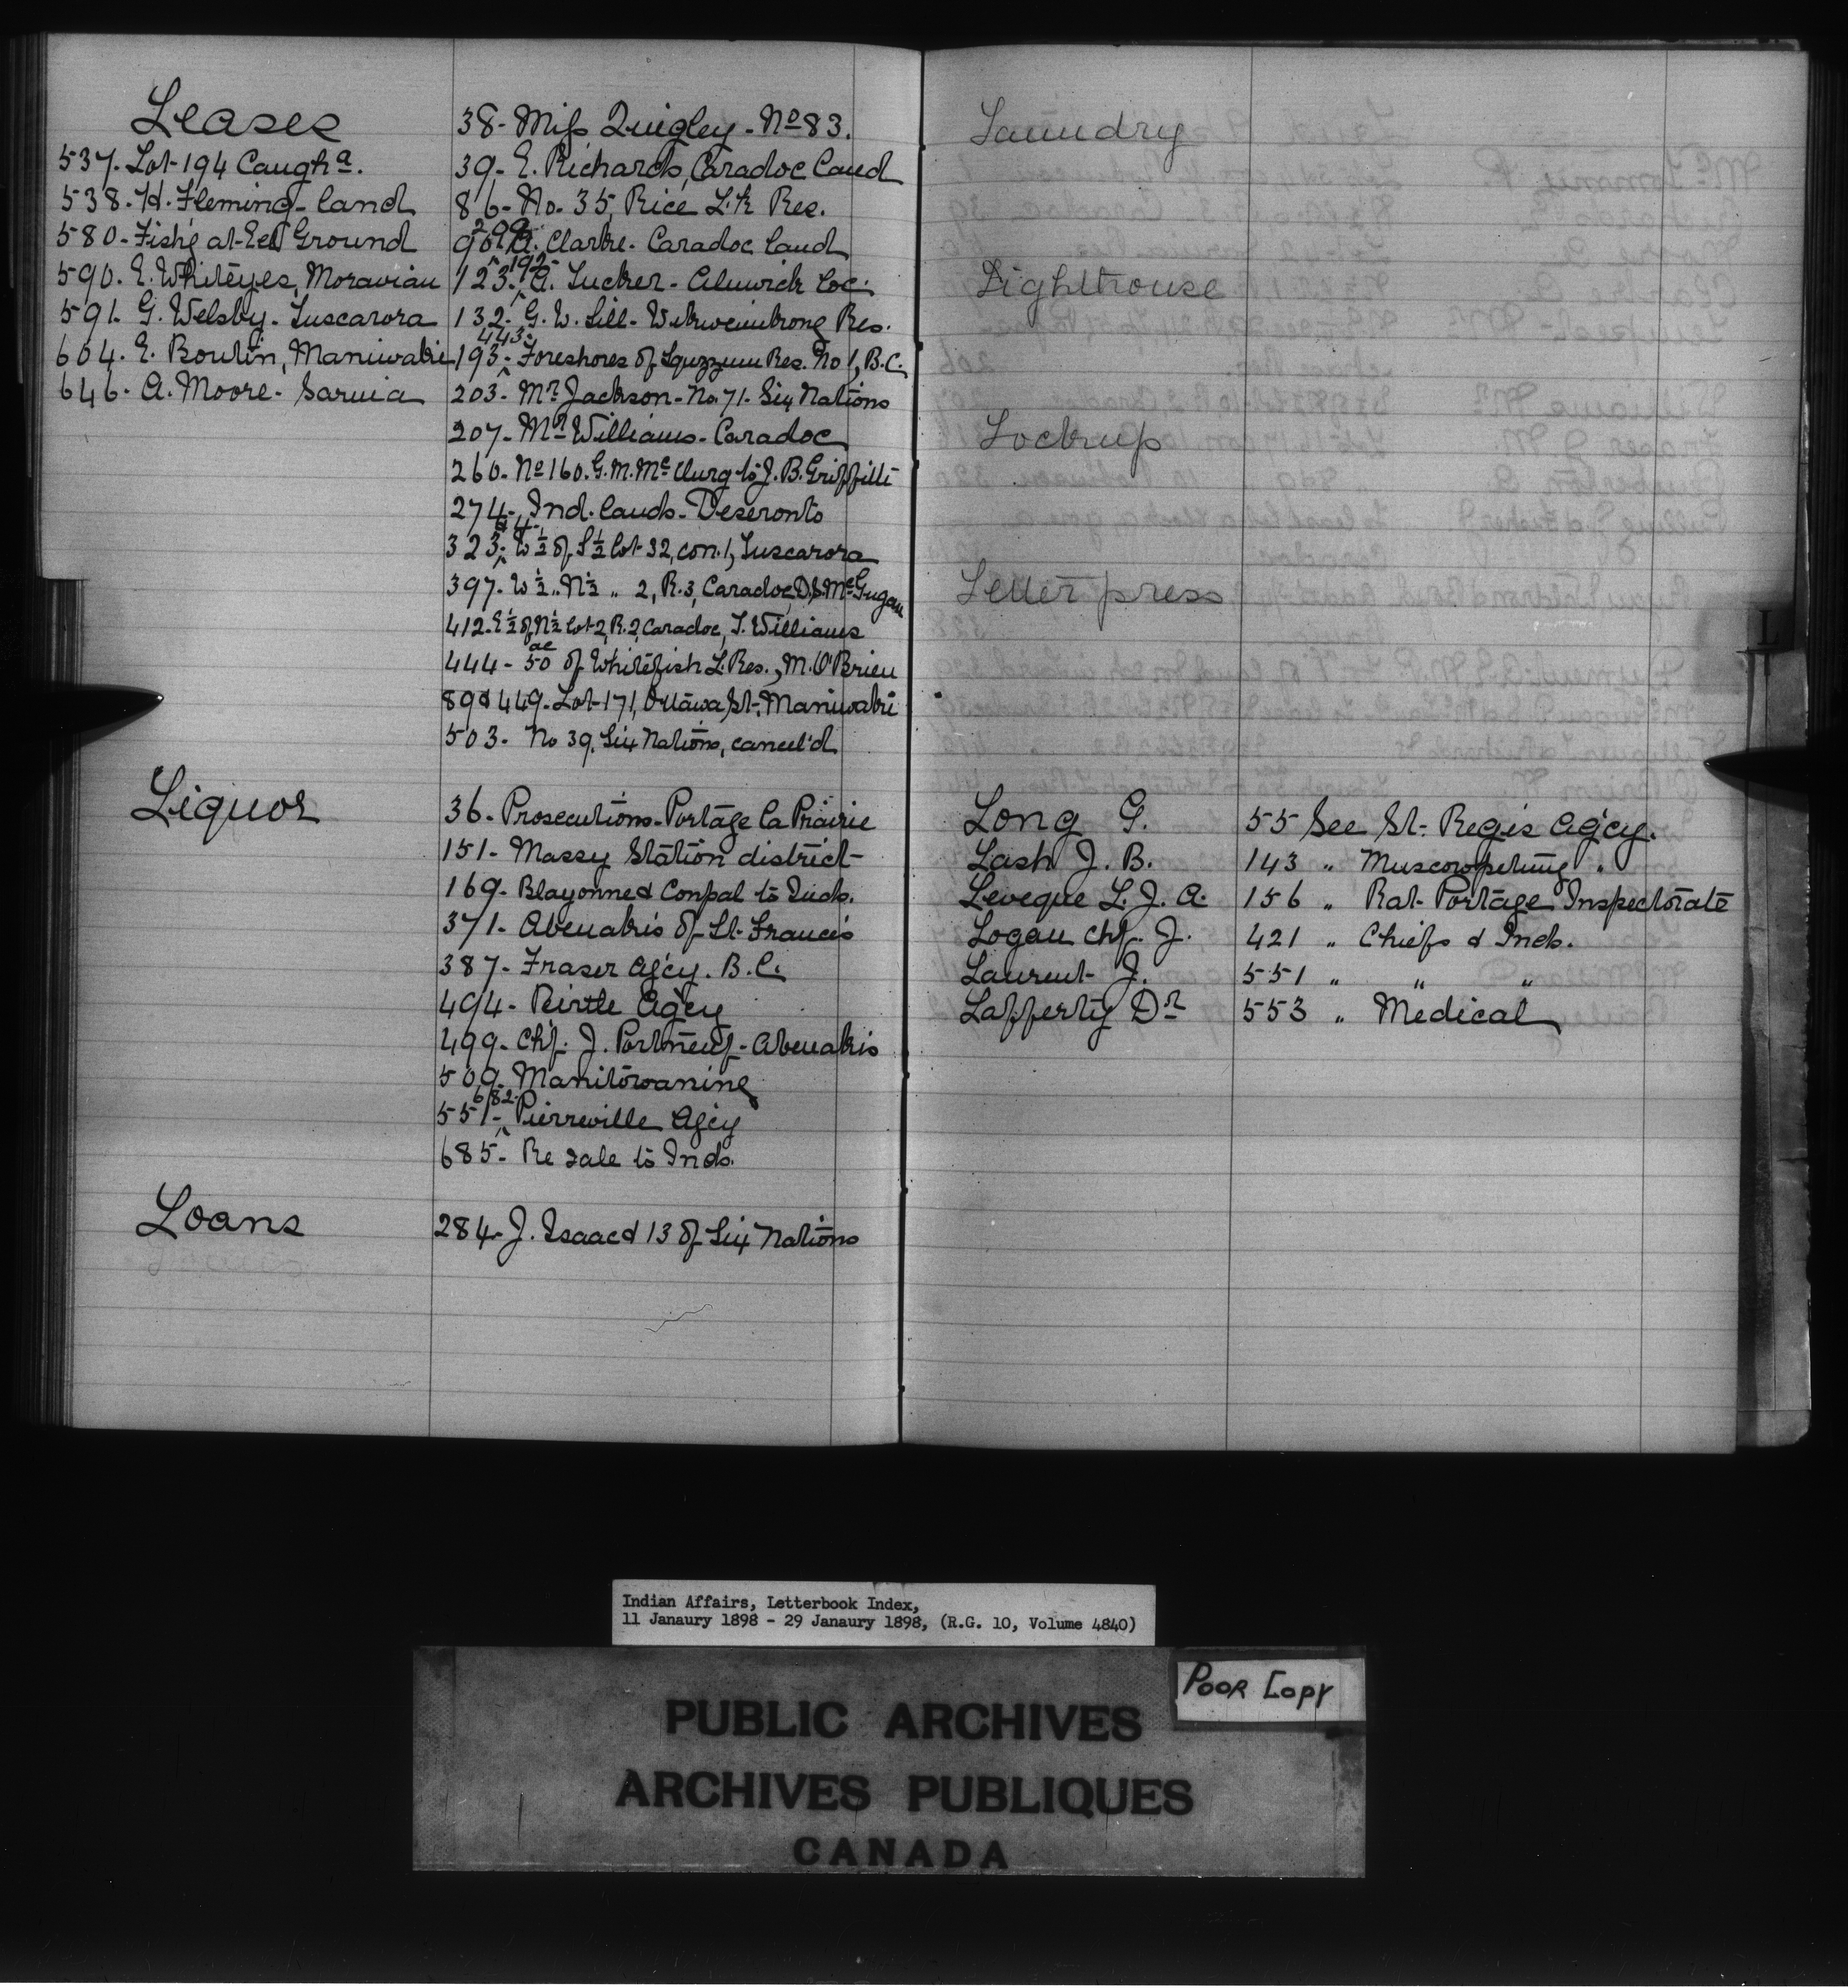 Leases
537. Lot 194 Caugha.
538. H. Fleming - land
580 - Fish'g at Eel Ground
590. E. Whiteyes, Moravian
591. G. Welsby. Tuscarora
604. E. Boulin, Maniwaki
646. A. Moore. Sarnia
38 - Miss Quigley - No 83.
39 - E. Richards, Caradoc land
86 - No. 35, Rice L'k Res.
90, 299. A. Clarke. Caradoc land
123, 192. A. Tucker - Alnwick loc.
132. G. W. Sill - Wikwemikong Res.
193, 443. Foreshores of Spuzzum Res. No 1, B.C.
203. Mr Jackson - No. 71. Six Nations
207. Mr Williams - Caradoc
260. No 160. G. M. McClurg to J. B. Griffith
274. Ind. lands - Deseronto
323. W ½ of S ½ lot 32, con. 1, Tuscarora
397. W ½ „ N ½ „ 2, R. 3, Caradoc, D. S. McGugan
412. E ½ of N ½ lot 2, R. 2, Caradoc, T. Williams
444 - 50 ac of Whitefish L. Res., M. O'Brien
89 & 449. Lot 171, Ottawa St., Maniwaki
503. No 39, Six Nations, cancel'd
Liquor
36 - Prosecutions - Portage la Prairie
151 - Massy Station district
169 - Blayonne & Conpal to Inds.
371 - Abenakis of St. Francis
387 - Fraser Ag'cy. B.C.
494 - Birtle Ag'cy
499. Chf. J. Portneuf - Abenakis
509. Manitowaning
551, 682. Pierreville Ag'cy
685 - Re sale to Inds.
Loans
284. J. Isaac & 13 of Six Nations
Laundry
Lighthouse
Lockup
Letter press
L
Long G. 55 See St. Regis Ag'cy.
Lash J. B. 143 „ Muscowpetung „
Leveque L. J. A. 156 „ Rat Portage Inspectorate
Logan Chf. J. 421 „ Chiefs & Inds.
Laurent J. 551 „ „ „
Lafferty Dr 553 „ Medical
Indian Affairs, Letterbook Index,
11 Janaury 1898 - 29 Janaury 1898, (R.G. 10, Volume 4840)
POOR COPY
PUBLIC ARCHIVES
ARCHIVES PUBLIQUES
CANADA